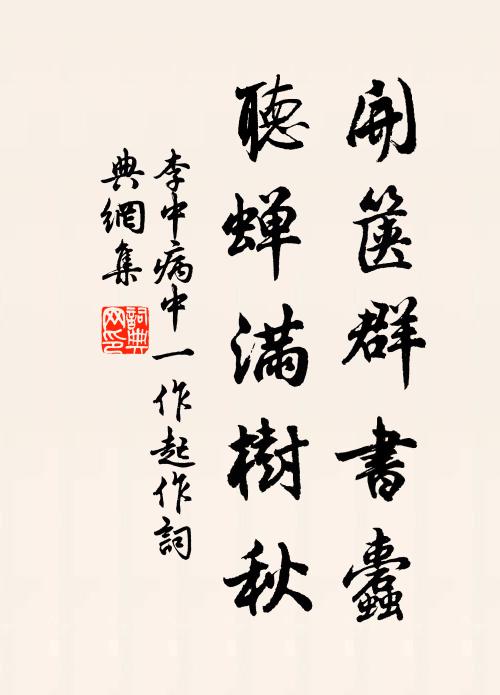 開箧群書蠹
聽蝉滿樹秋
李中病中一作起作詞
典網集
詞典网印